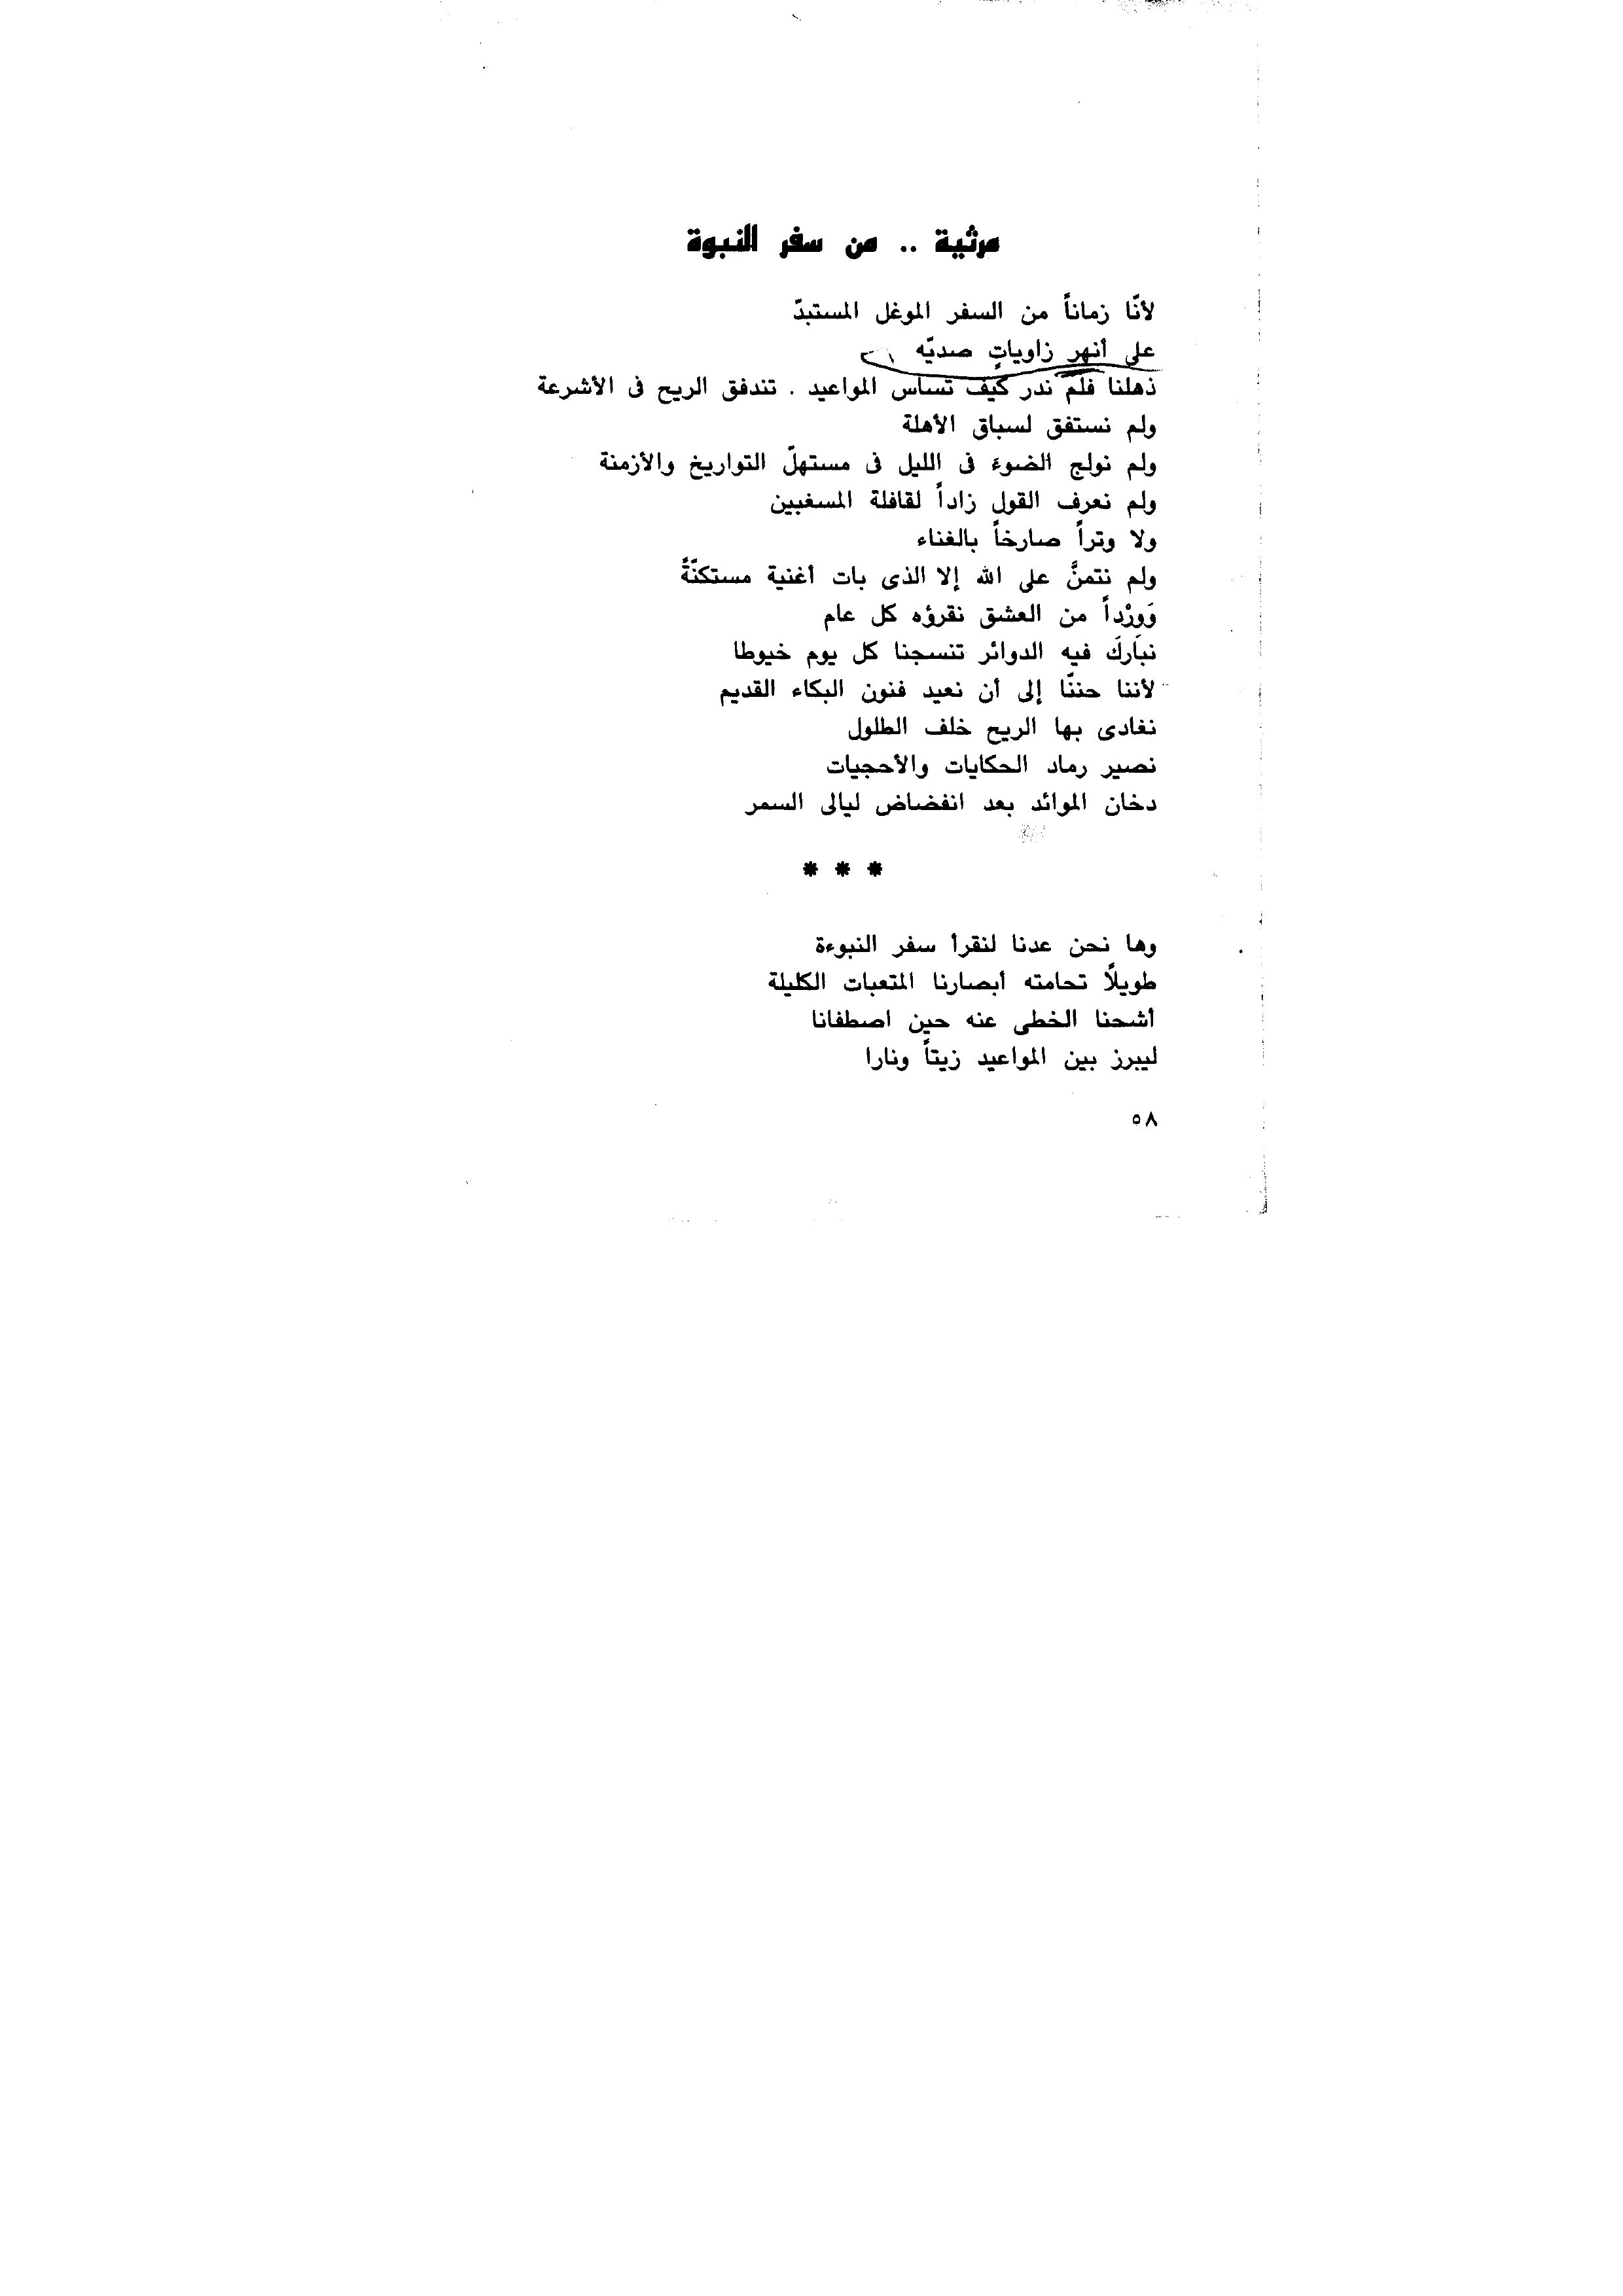 مرثية .. من سفر النبوة
لأنّا زماناً من السفر الموغل المستبدّ
على أنهر زاوياتٍ صديّه
ذهلنا فلم ندر كيف تساس المواعيد . تندفق الريح فى الأشرعة
ولم نستفق لسباق الأهلة
ولم نولج الضوءَ فى الليل فى مستهلّ التواريخ والأزمنة
ولم نعرف القول زاداً لقافلة المسغبين
ولا وتراً صارخاً بالغناء
ولم نتمنَّ على الله إلا الذى بات أغنية مستكنّةً
وَوِرْداً من العشق نقرؤه كل عام
نبارك فيه الدوائر تنسجنا كل يوم خيوطا
لأننا حننّا إلى أن نعيد فنون البكاء القديم
نغادى بها الريح خلف الطلول
نصير رماد الحكايات والأحجيات
دخان الموائد بعد انفضاض ليالى السمر
* * *
وها نحن عدنا لنقرأ سفر النبوءة
طويلاً تحامته أبصارنا المتعبات الكليلة
أشحنا الخطى عنه حين اصطفانا
ليبرز بين المواعيد زيتاً ونارا
٥٨